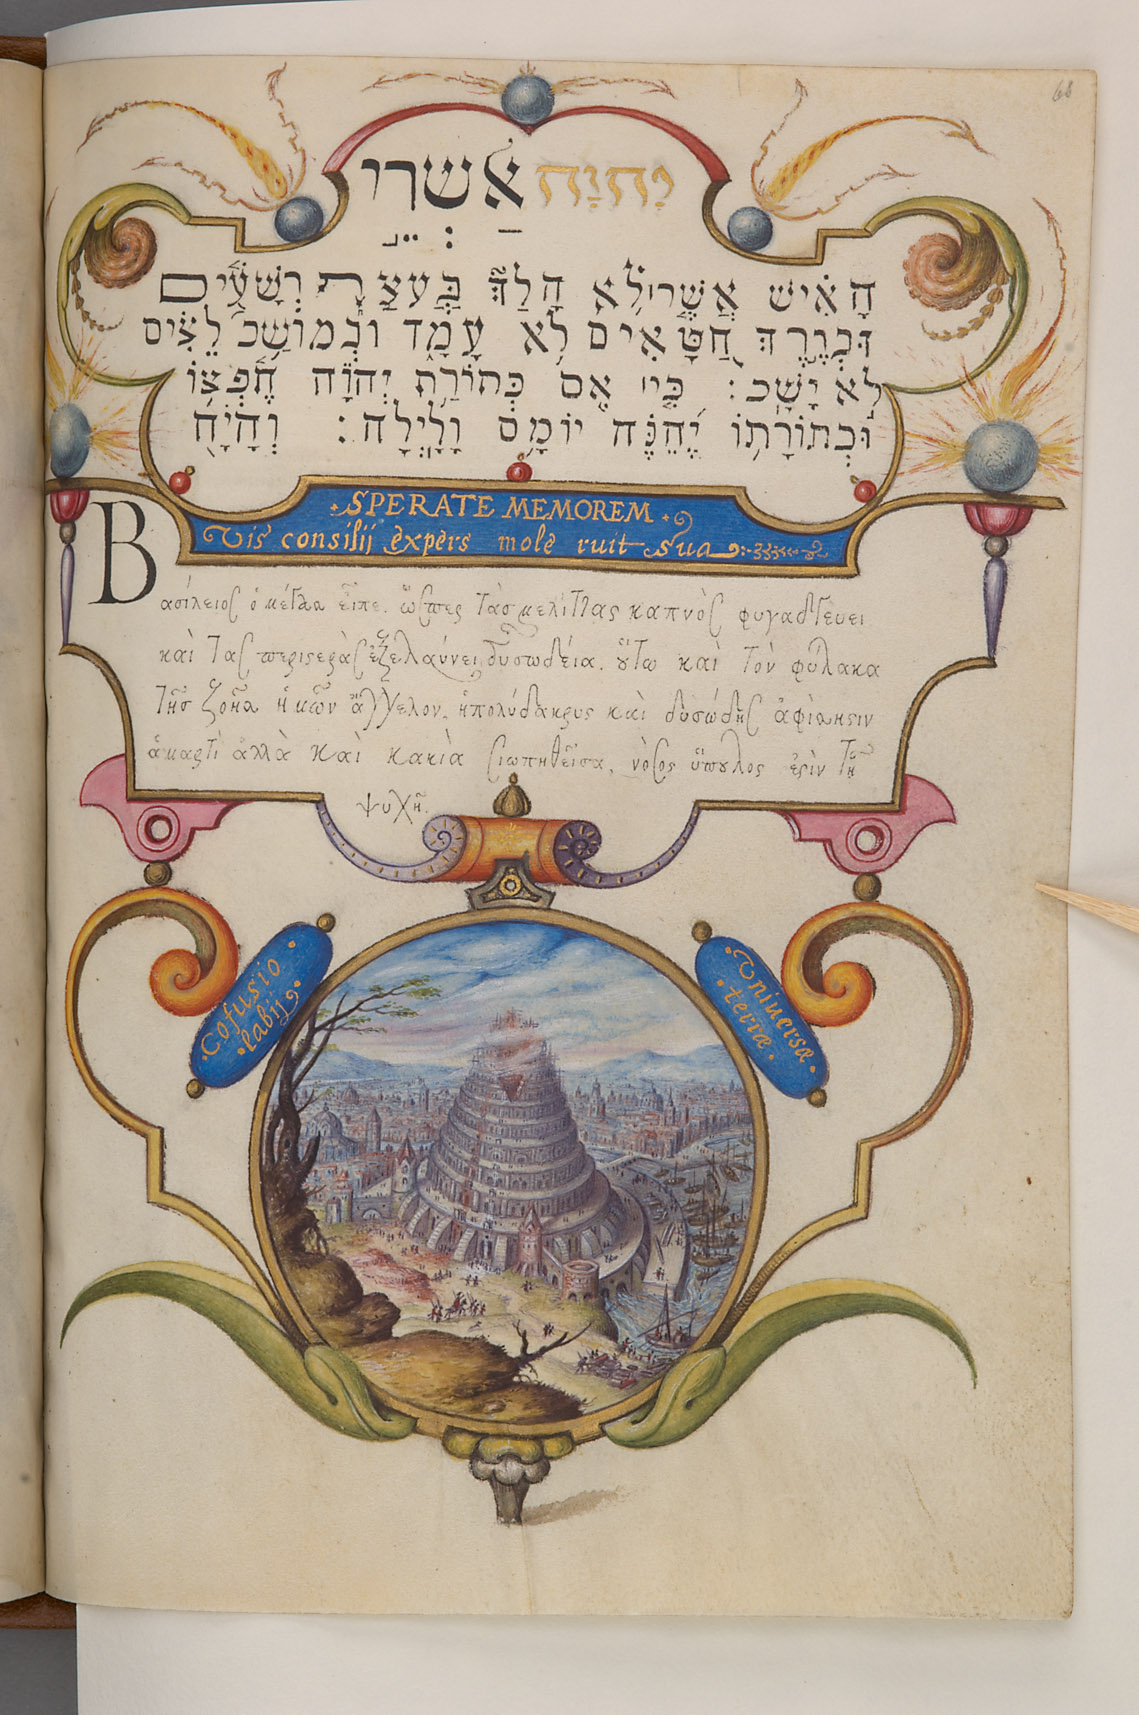 68
יהוה אַשְׁרֵי
הָאִישׁ אֲשֶׁר לֹא הָלַךְ בַּעֲצַת רְשָׁעִים
וּבְדֶרֶךְ חַטָּאִים לֹא עָמָד וּבְמוֹשַׁב לֵצִים
לֹא יָשָׁב: כִּי אִם בְּתוֹרַת יְהוָה חֶפְצוֹ
וּבְתוֹרָתוֹ יֶהְגֶּה יוֹמָם וָלָיְלָה: וְהָיָה
SPERATE MEMOREM
Vis consilij expers mole ruit Sua
Βασίλειος ὁ μέγας εἶπε. ὥσπερ τὰς μελίττας καπνὸς φυγαδεύει
καὶ τὰς περιστερὰς ἐξελαύνει δυσωδεία. οὕτω καὶ τὸν φύλακα
τῆς ζωῆς ἡμῶν ἄγγελον. ἡ πολύδακρυς καὶ δυσώδης ἀφίησιν
ἁμαρτί ἀλλὰ καὶ κακία σιωπηθεῖσα, νόσος ὕπουλος ἐστὶν τῇ
ψυχῇ.
Cofusio
labij
Vniuersæ
terræ